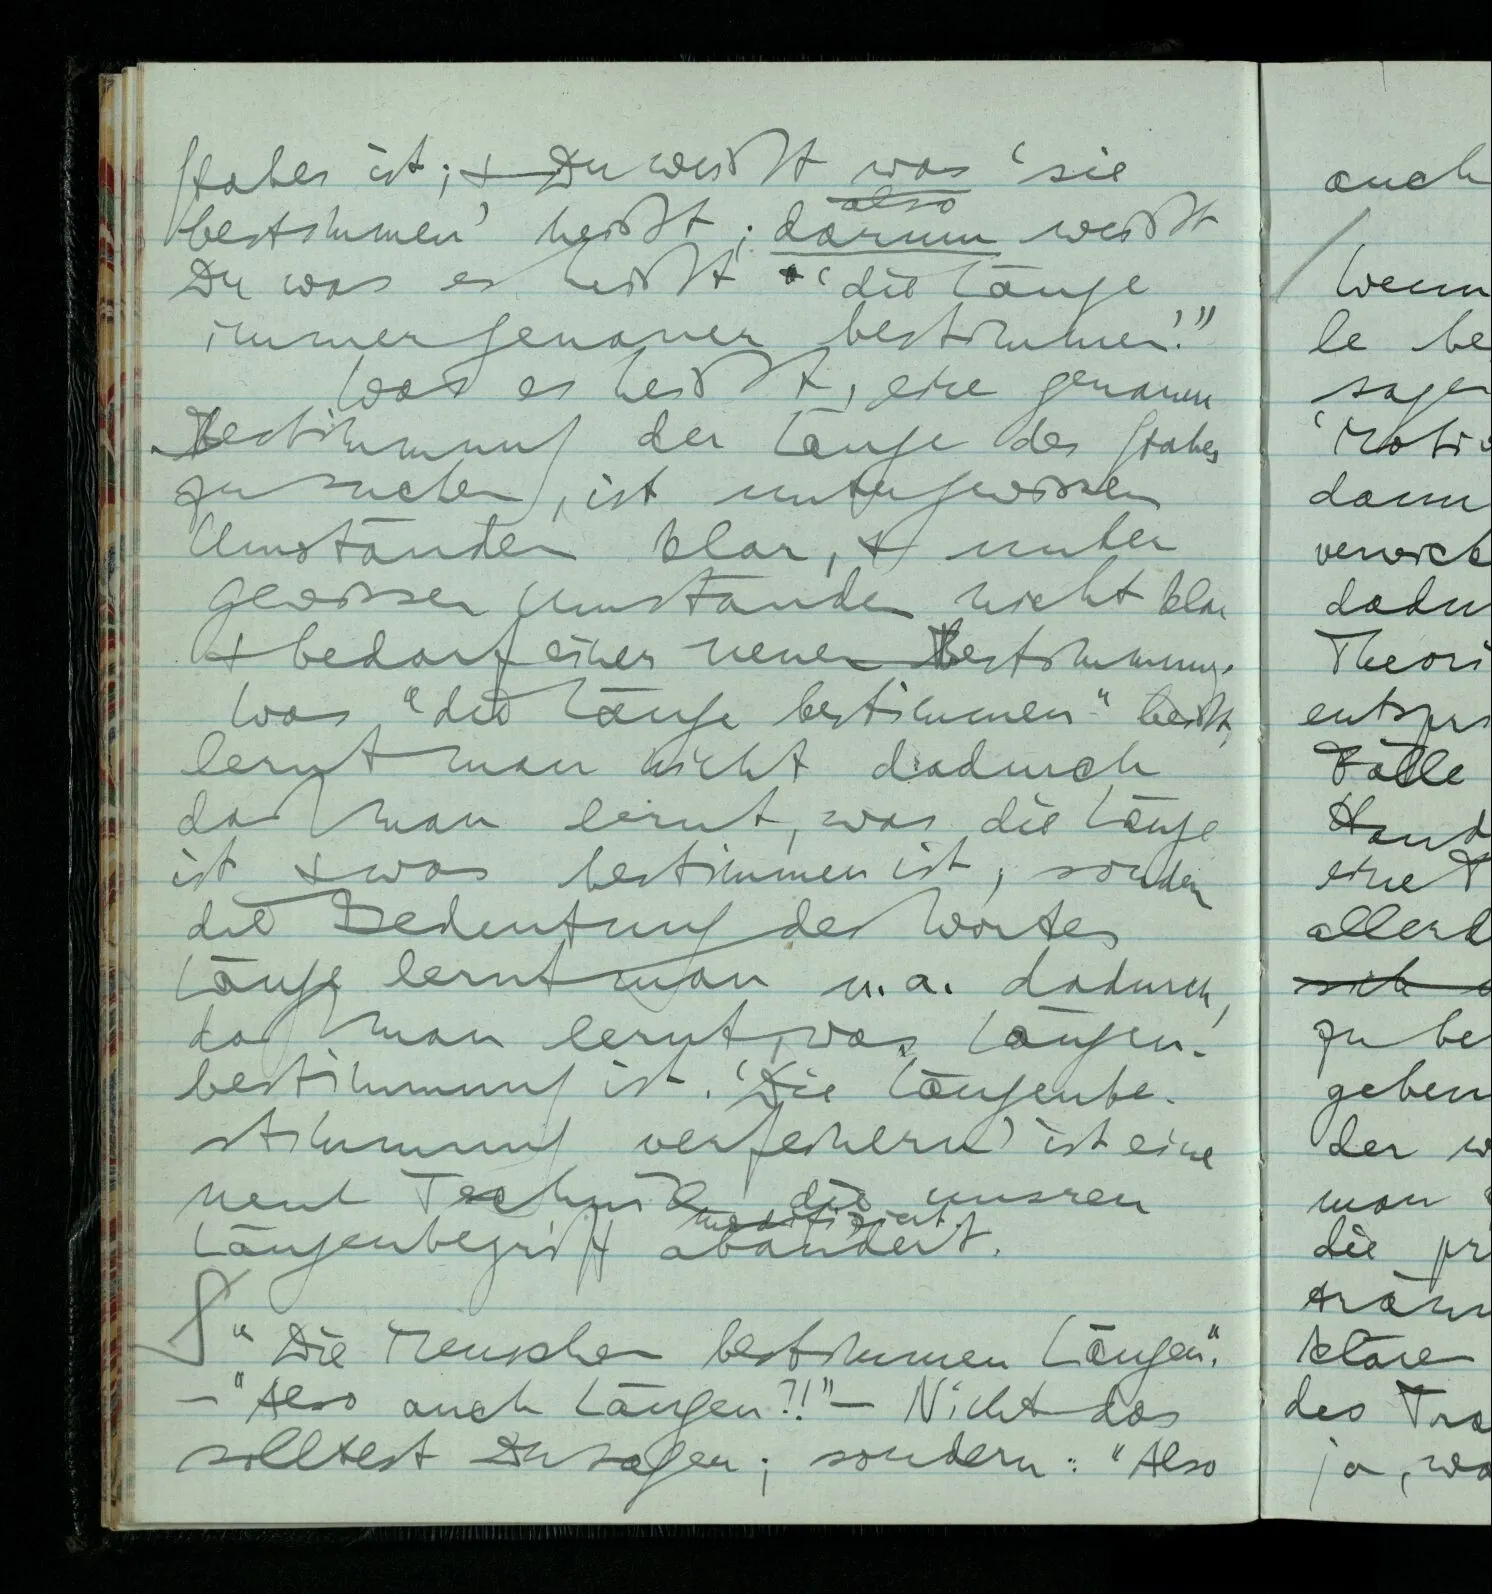 Stabes ist; + Du weißt was ‘sie
bestimmen’ heißt; also
darum weißt
Du was es heißt ‘die Länge
immer genauer bestimmen’.”
Was es heißt, eine genauere
Bestimmung der Länge des Stabes
zu suchen, ist unter gewissen
Umständen klar, + unter
gewissen Umständen nicht klar
+ bedarf einer neuen Bestimmung.
Was “die Länge bestimmen” heißt,
lernt man nicht dadurch
daß man lernt, was die Länge
ist + was bestimmen ist, sondern
die Bedeutung des Wortes
Länge lernt man u.a. dadurch,
daß man lernt, was Längen-
bestimmung ist. ‘Die Längenbe-
stimmung verfeinern’ ist eine
neue Technik die unsren
modifiziert.
Längenbegriff abändert.
“Die Menschen bestimmen Längen”.
– “Also auch Längen?!” – Nicht das
solltest Du sagen; sondern: “Also
auch
Wenn
le be
sagen
dann
dadu
Theori
entspr
Fälle
Hand
eine T
allerd
zu be
geben
der w
man
die pr
des Tra
ja, wa